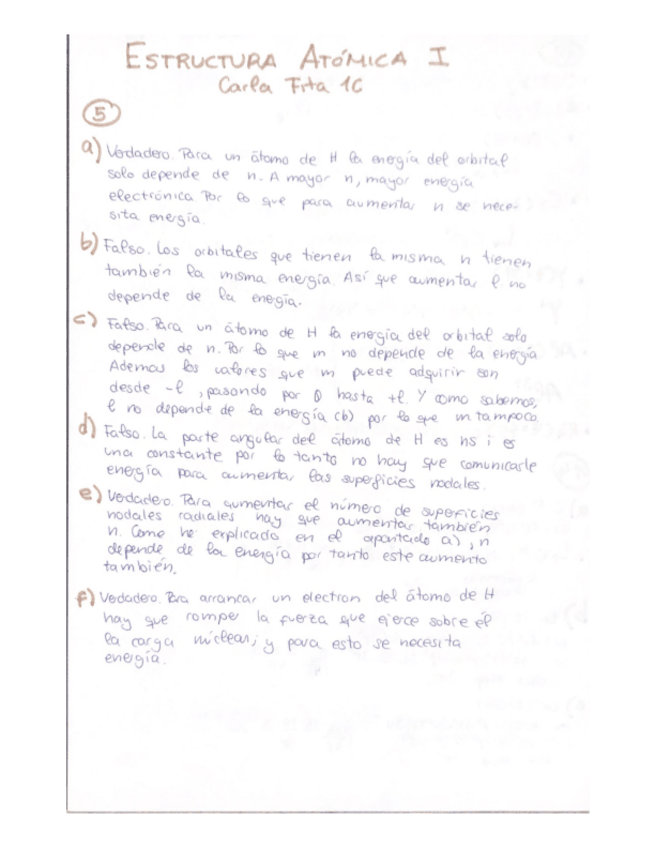 ESTRUCTURA ATÓMICA I
Carla Frta 1C
5
a) Verdadero. Para un átomo de H la energía del orbital
solo depende de n. A mayor n, mayor energía
electrónica. Por lo que para aumentar n se nece-
sita energía.
b) Falso. Los orbitales que tienen la misma n tienen
también la misma energía. Así que aumentar l no
depende de la energía.
c) Falso. Para un átomo de H la energía del orbital solo
depende de n. Por lo que m no depende de la energía
Ademas los valores que m puede adquirir son
desde -l, pasando por 0 hasta +l. Y como sabemos,
l no depende de la energía (b) por lo que m tampoco.
d) Falso. La parte angular del átomo de H es ns i es
una constante por lo tanto no hay que comunicarle
energía para aumentar las superficies nodales.
e) Verdadero. Para aumentar el número de superficies
nodales radiales hay que aumentar también
n. Como he explicado en el apartado a), n
depende de la energía por tanto este aumento
también.
f) Verdadero. Para arrancar un electron del átomo de H
hay que romper la fuerza que ejerce sobre él
la carga nuclear, y para esto se necesita
energía.